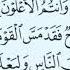 وَأَنتُمُ الْأَعْلَوْنَ
فَقَدْ مَسَّ الْقَوْ
النَّاسِ وَلِيَعْلَ